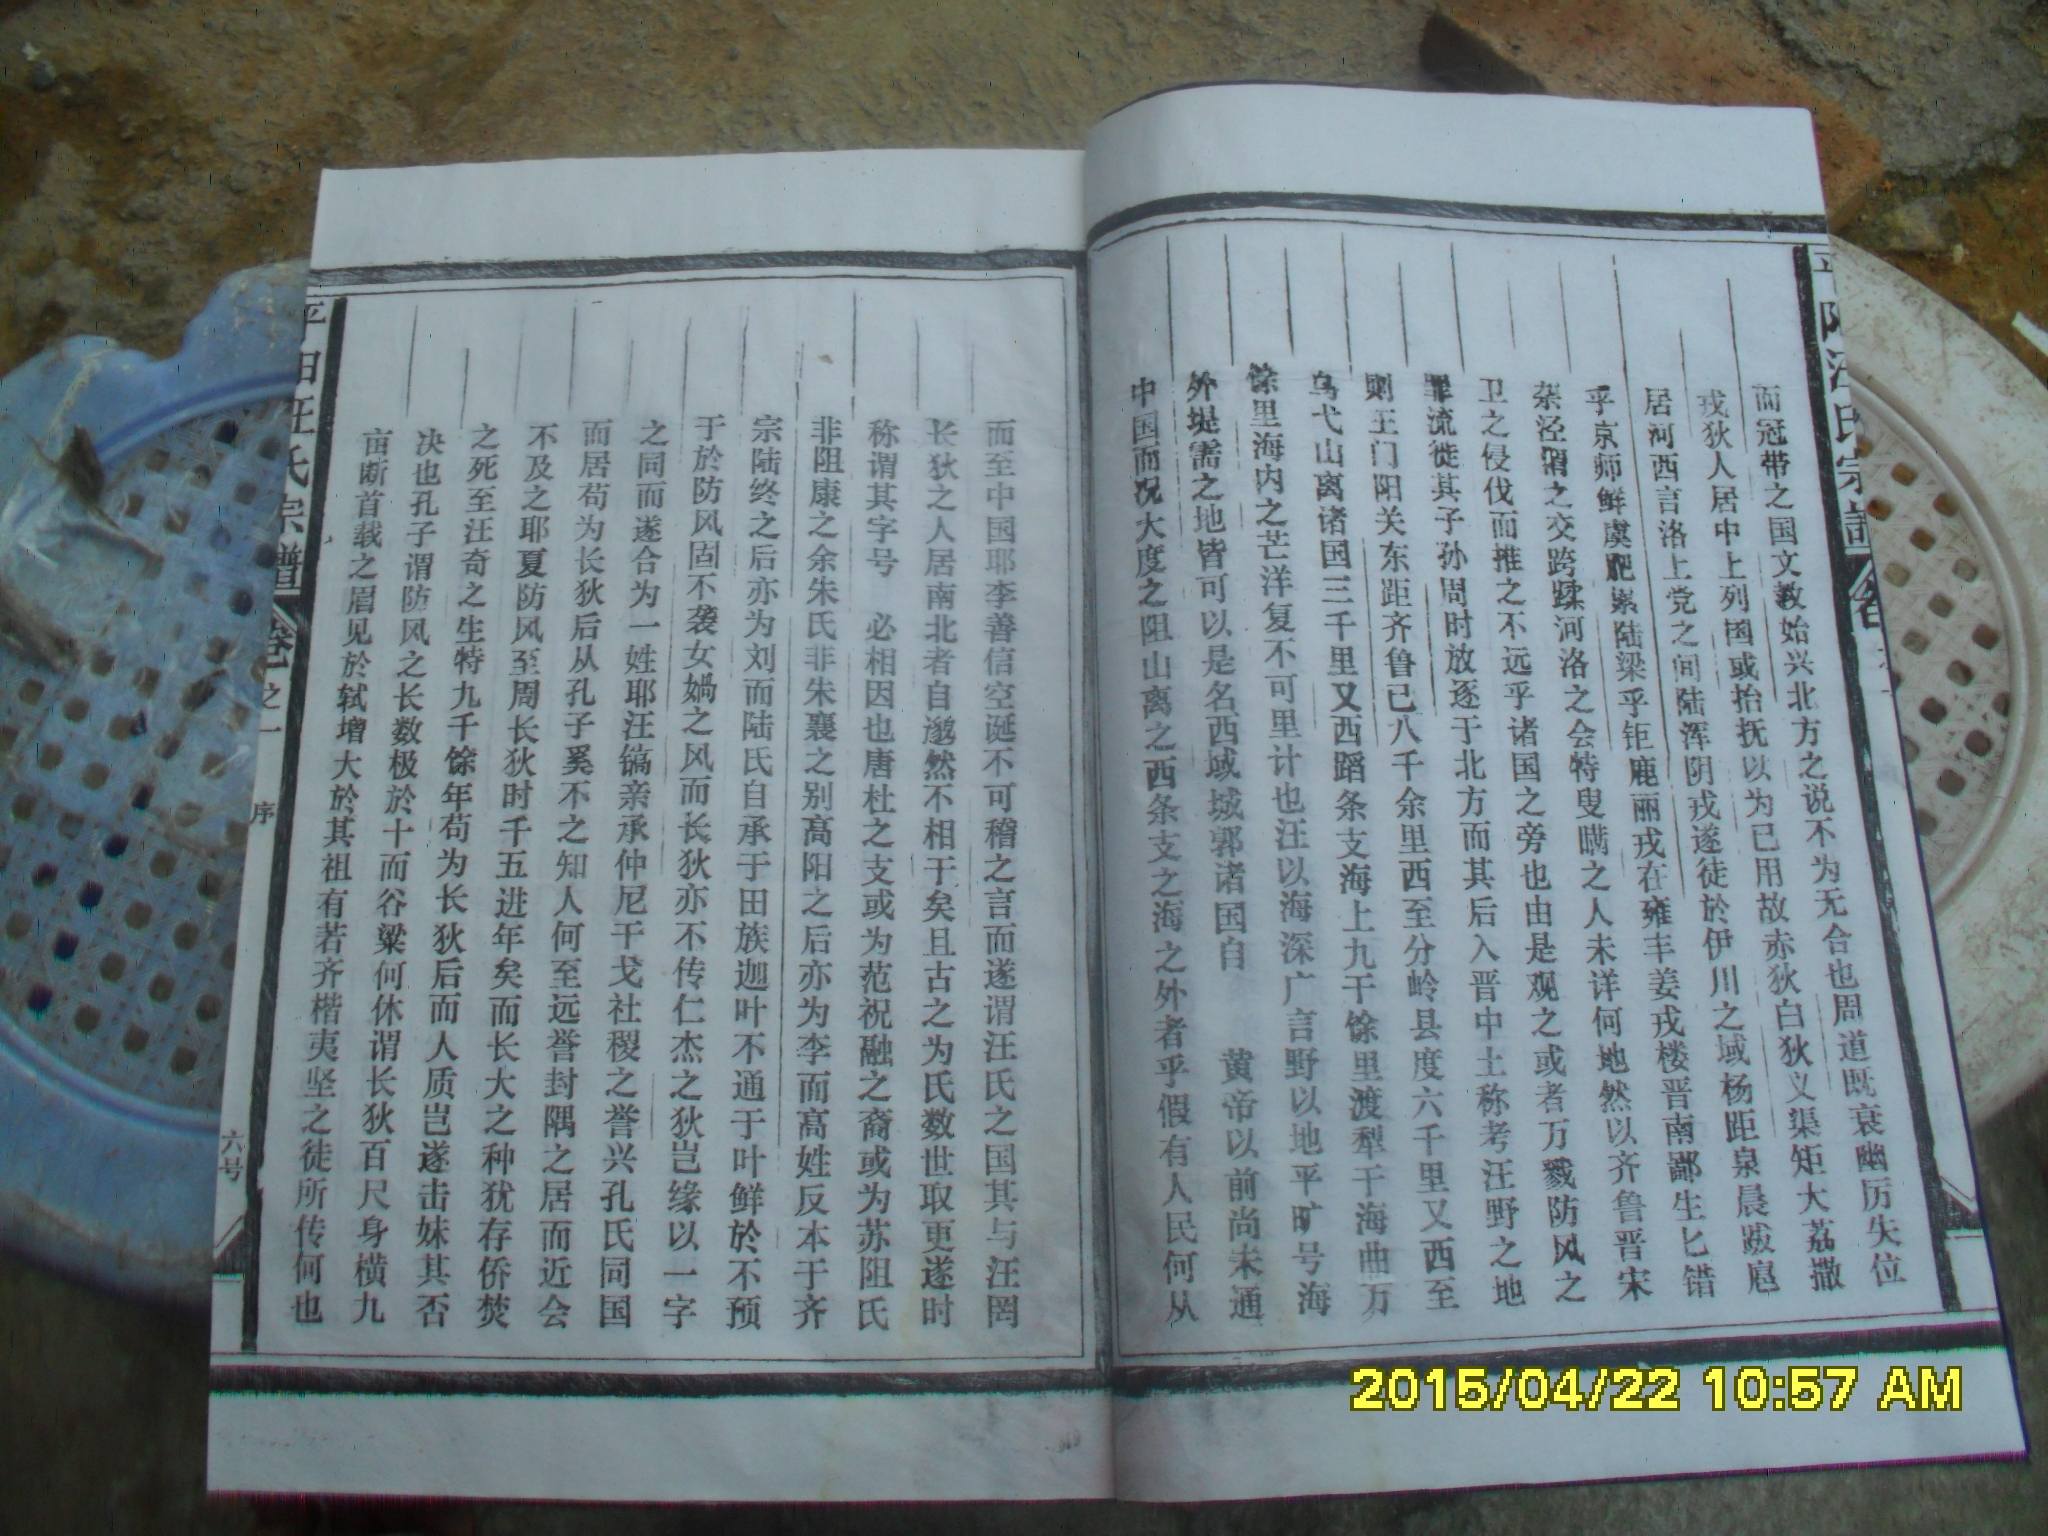 而冠带之国文教始兴北方之说不为无合也周道既衰幽厉失位
戎狄人居中上列国或抬抚以为已用故赤狄白狄义渠矩大荔撒
居河西言洛上党之间陆浑阴戎遂徒於伊川之域杨距泉晨跋扈
乎京师鲜虞肥累陆梁乎钜鹿丽戎在雍丰姜戎楼晋南鄙生匕错
杂泾渭之交跨蹂河洛之会特叟瞒之人未详何地然以齐鲁晋宋
卫之侵伐而推之不远乎诸国之旁也由是观之或者万戮防风之
罪流徙其子孙周时放逐于北方而其后入晋中土称考汪野之地
则玉门阳关东距齐鲁已八千余里西至分岭县度六千里又西至
乌弋山离诸国三千里又西蹈条支海上九千馀里渡犁干海曲万
馀里海内之芒洋复不可里计也汪以海深广言野以地平旷号海
外堤需之地皆可以是名西域城郭诸国自 黄帝以前尚未通
中国而况大度之阻山离之西条支之海之外者乎假有人民何从
而至中国耶李善信空诞不可稽之言而遂谓汪氏之国其与汪罔
长狄之人居南北者自邈然不相于矣且古之为氏数世取更遂时
称谓其字号 必相因也唐杜之支或为范祝融之裔或为苏阻氏
非阻康之余朱氏非朱襄之别高阳之后亦为李而高姓反本于齐
宗陆终之后亦为刘而陆氏自承于田族迦叶不通于叶鲜於不预
于於防风固不袭女娲之风而长狄亦不传仁杰之狄岂缘以一字
之同而遂合为一姓耶汪镐亲承仲尼干戈社稷之誉兴孔氏同国
而居苟为长狄后从孔子奚不之知人何至远誉封隅之居而近会
不及之耶夏防风至周长狄时千五进年矣而长大之种犹存侨焚
之死至汪奇之生特九千馀年苟为长狄后而人质岂遂击妹其否
决也孔子谓防风之长数极於十而谷梁何休谓长狄百尺身横九
亩断首载之眉见於轼增大於其祖有若齐楷夷坚之徒所传何也
平阳汪氏宗谱
卷之一
序
六号
2015/04/22 10:57 AM